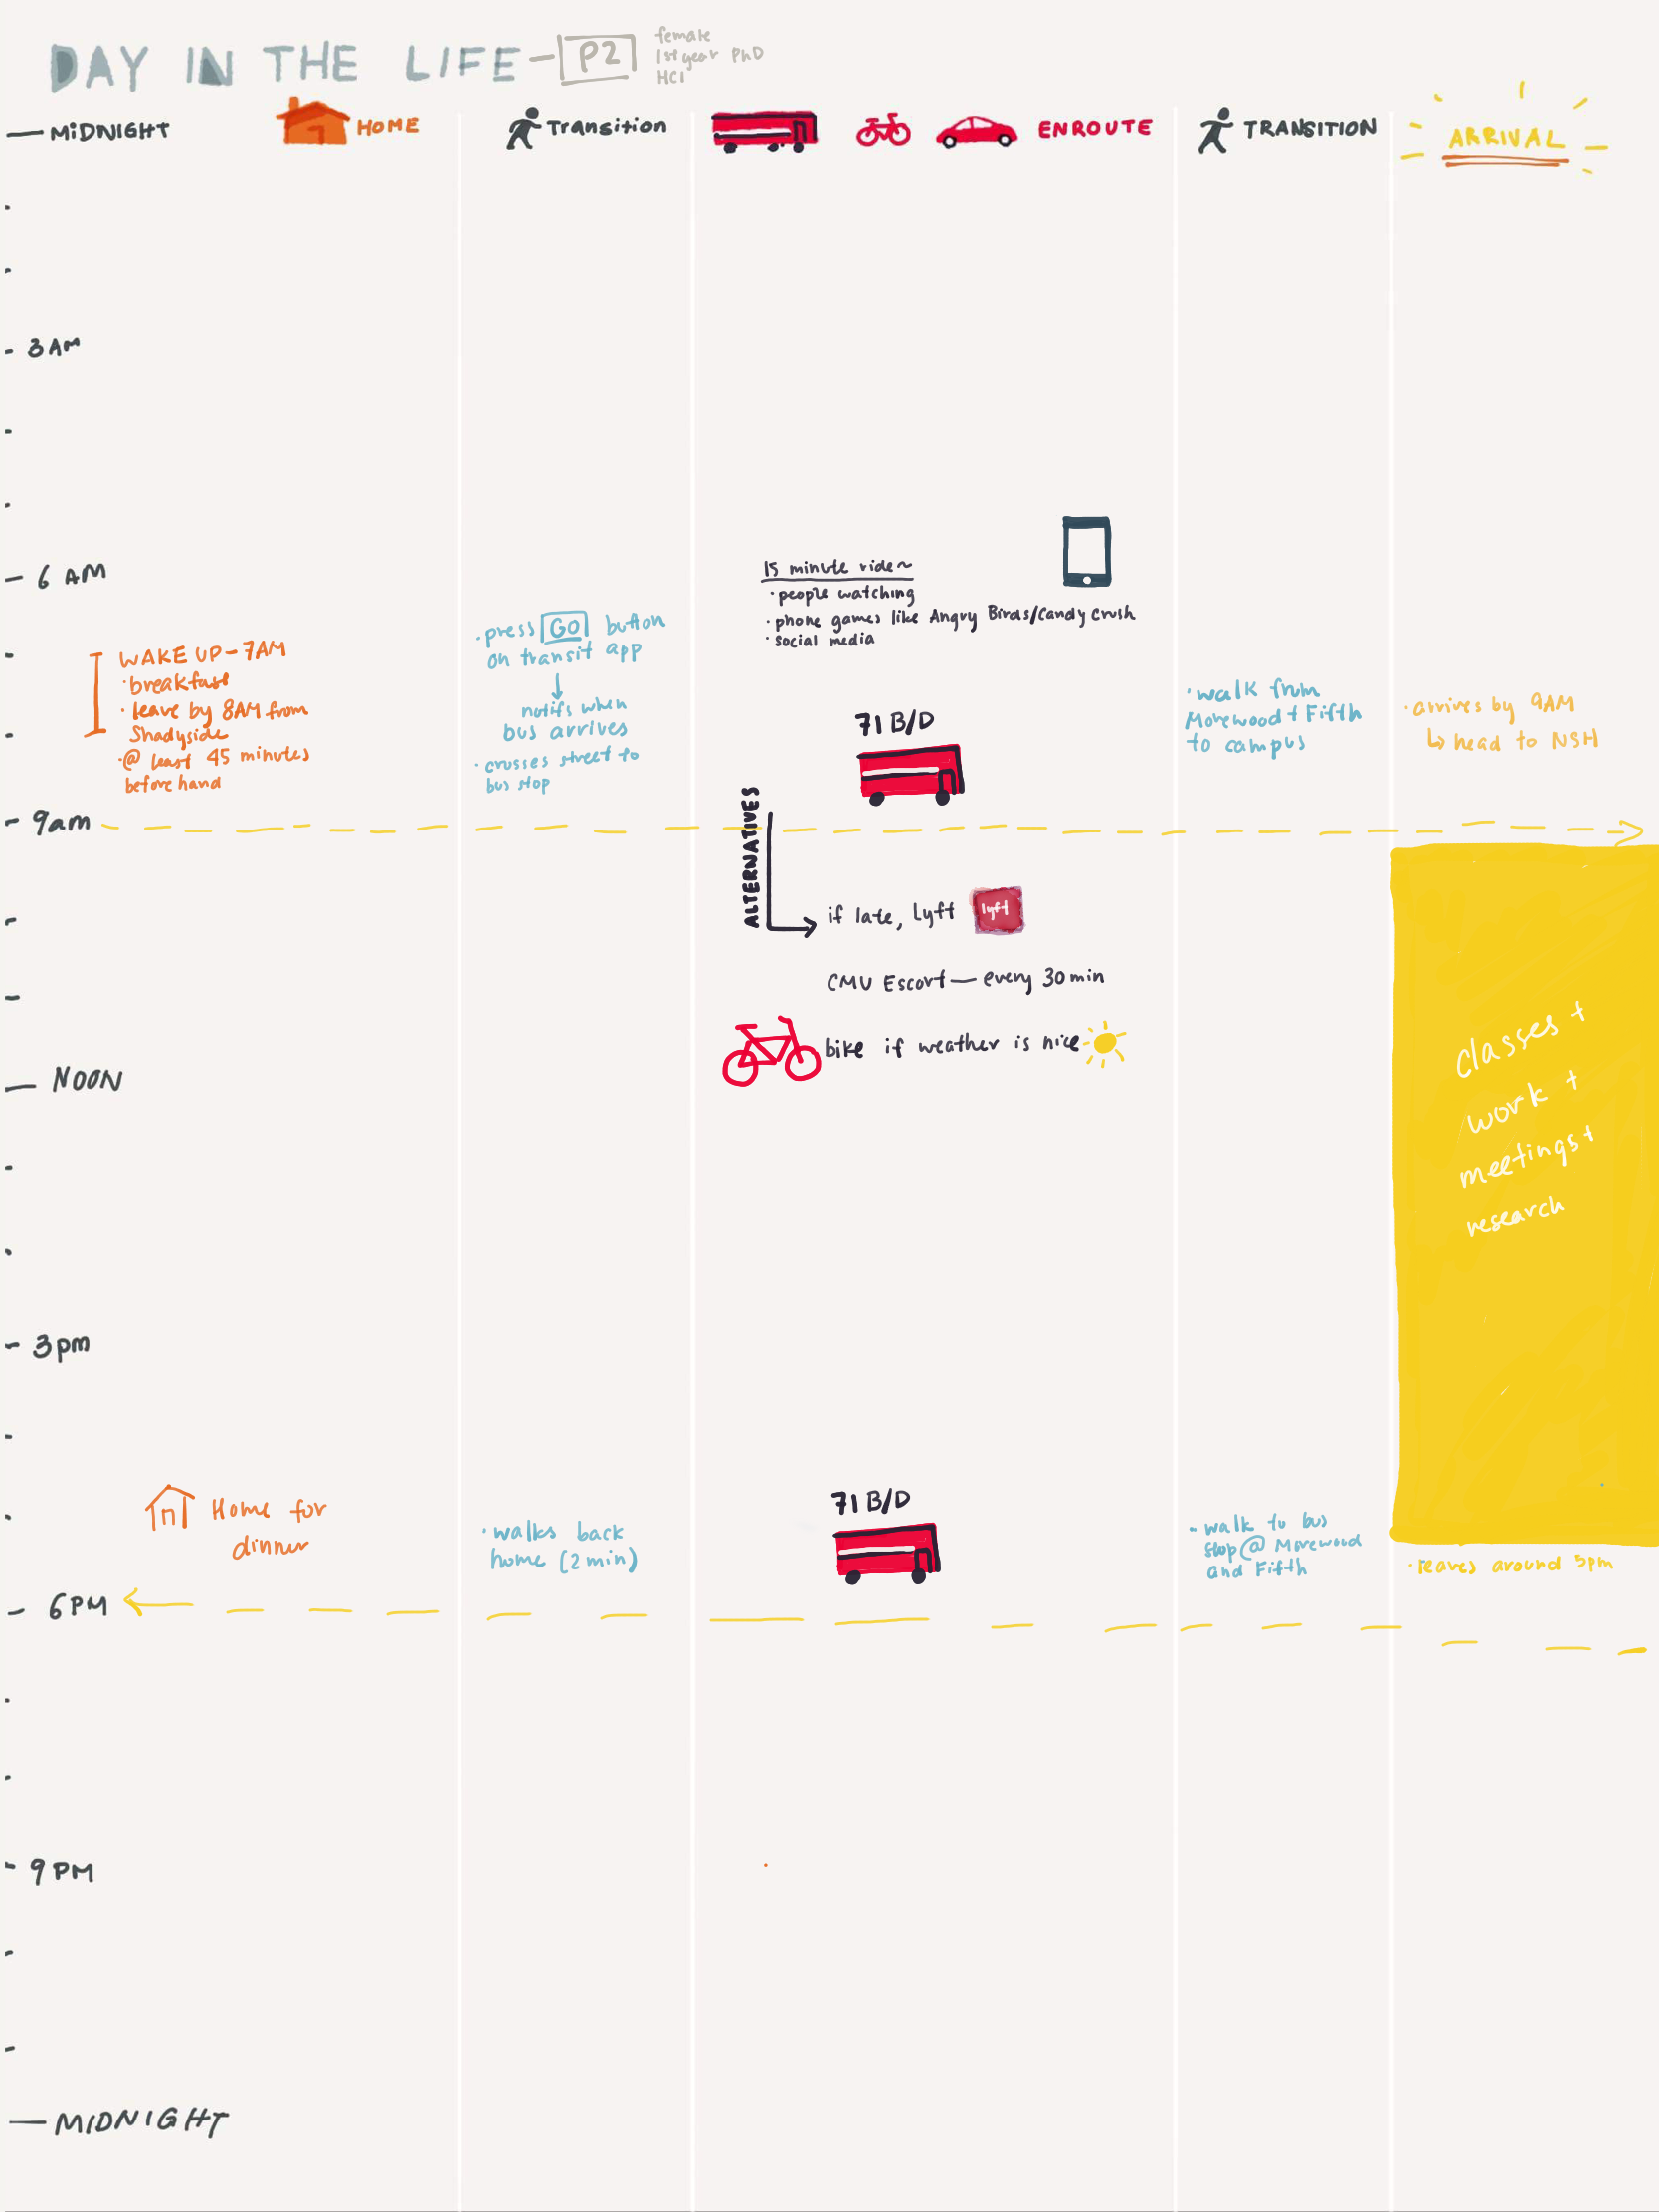 DAY IN THE LIFE — P2
female
1st year PhD
HCI
MIDNIGHT
HOME
Transition
ENROUTE
TRANSITION
ARRIVAL
3AM
6 AM
WAKE UP - 7AM
· breakfast
· leave by 8AM from
Shadyside
· @ least 45 minutes
before hand
· press GO button
on transit app
notifs when
bus arrives
· crosses street to
bus stop
15 minute ride ~
· people watching
· phone games like Angry Birds/Candy Crush
· social media
71 B/D
· walk from
Morewood + Fifth
to campus
· arrives by 9AM
↳ head to NSH
9am
ALTERNATIVES
if late, Lyft
lyft
CMU Escort — every 30 min
bike if weather is nice
NOON
classes +
work +
meetings +
research
3pm
Home for
dinner
· walks back
home (2 min)
71 B/D
- walk to bus
stop @ Morewood
and Fifth
· leaves around 5pm
6PM
9 PM
MIDNIGHT